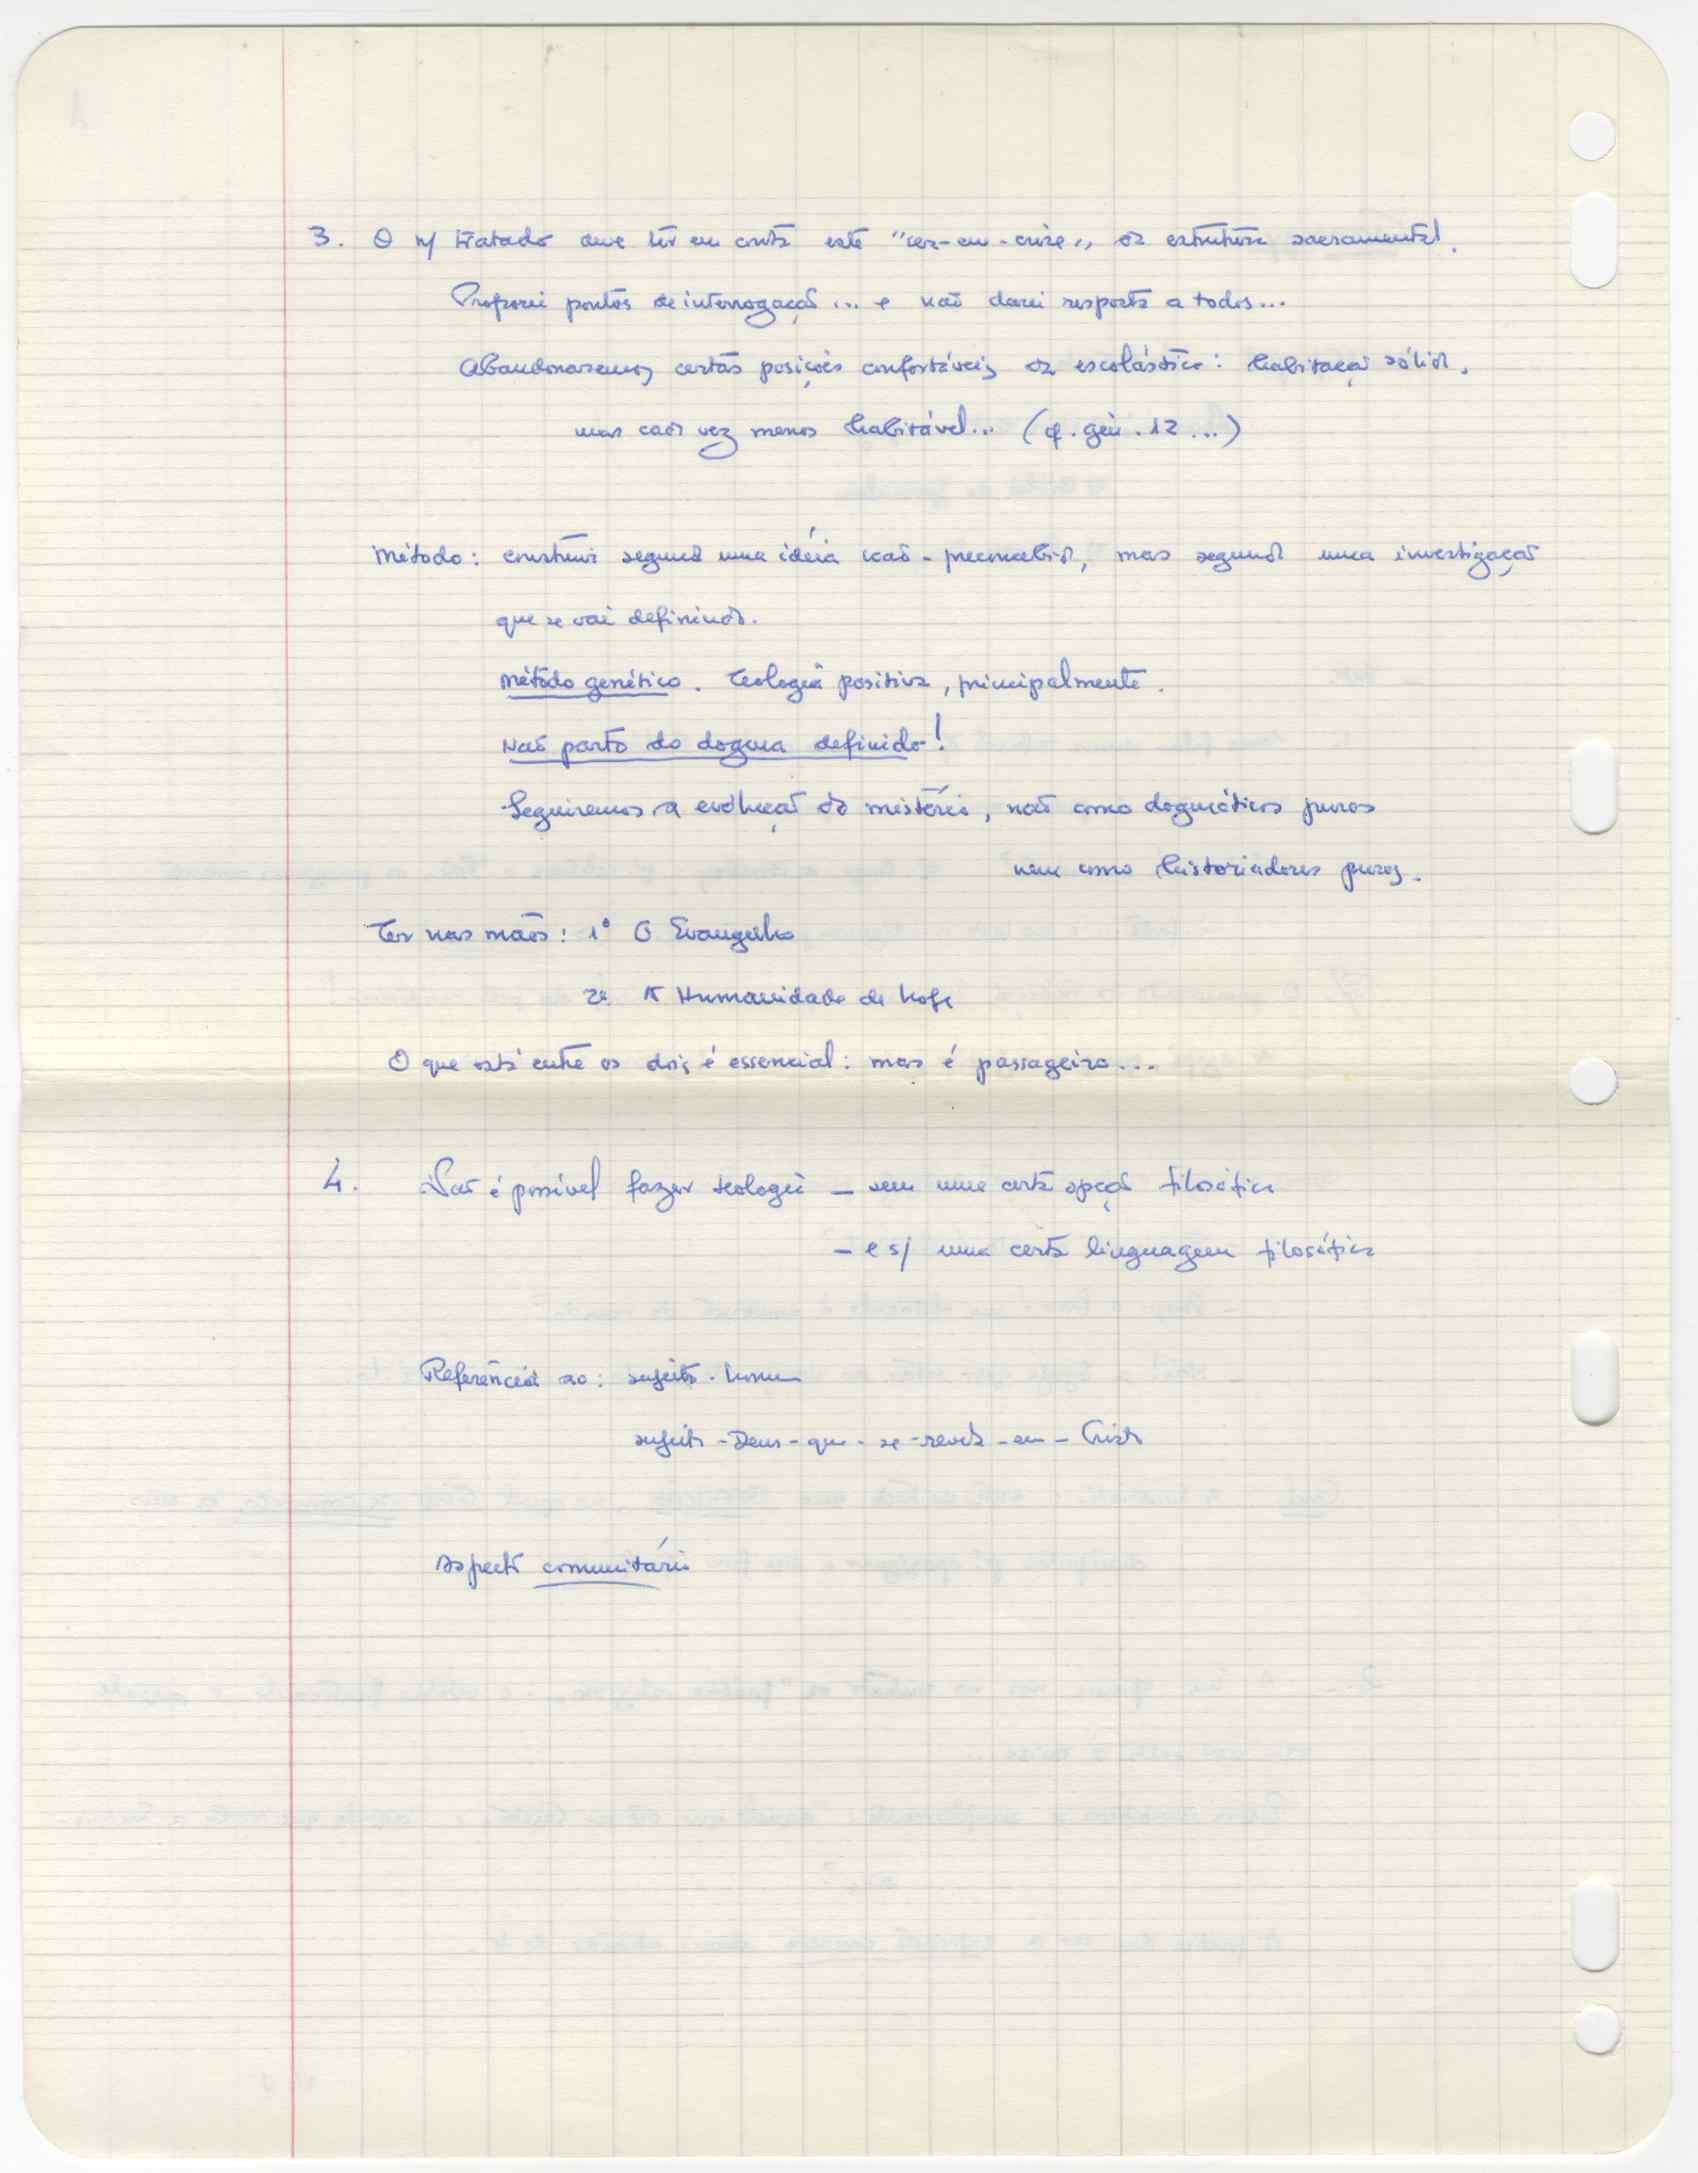 3. O n/ tratado deve ter em conta este "ser-em-crise", da estrutura sacramental.
Proporei pontos de interrogação... e não darei resposta a todos...
Abandonaremos certas posições confortáveis da escolástica: habitação sólida,
mas cada vez menos habitável... (cf. gén. 12...)
Método: construir segundo uma idéia não-preconcebida, mas segundo uma investigação
que se vai definindo.
Método genético. Teologia positiva, principalmente.
Não parto do dogma definido!
Seguiremos a evolução do mistério, não como dogmáticos puros
nem como historiadores puros.
Ter nas mãos: 1º O Evangelho
2º A Humanidade de hoje
O que está entre os dois é essencial: mas é passageiro...
4. Não é possível fazer teologia - sem uma certa opção filosófica
- e s/ uma certa linguagem filosófica
Referência ao: sujeito-homem
sujeito-Deus-que-se-revela-em-Cristo
Aspecto comunitário